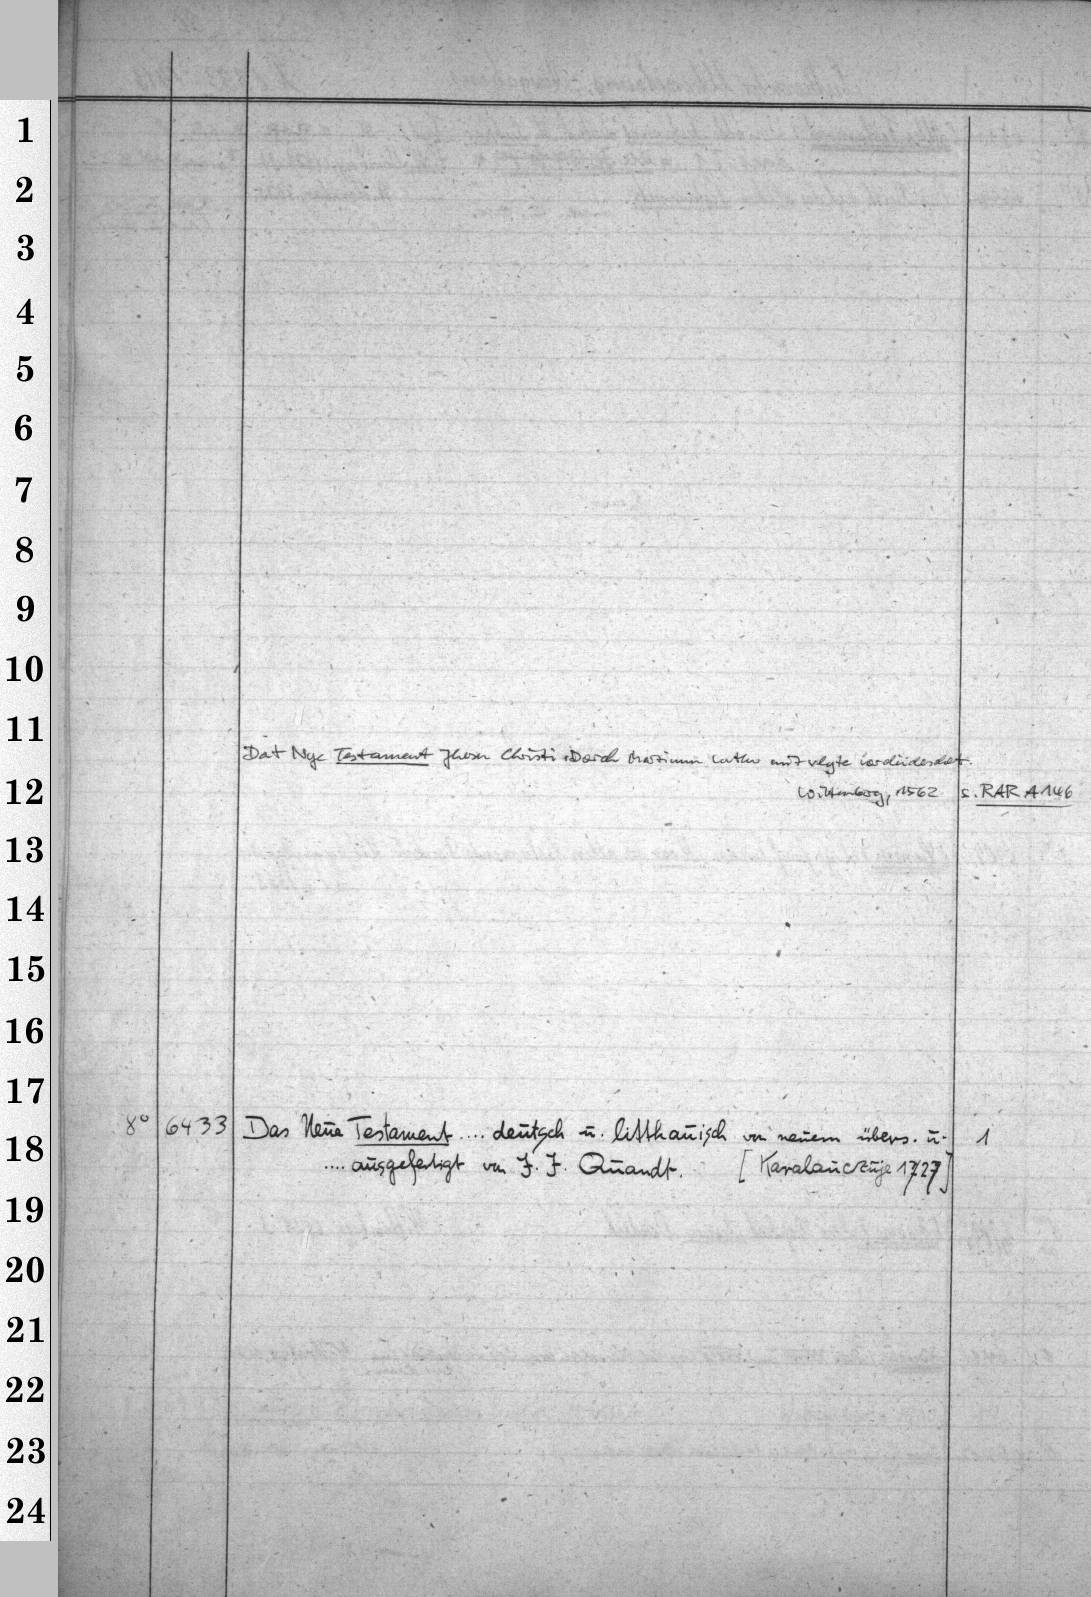 1
2
3
4
5
6
7
8
9
10
11
Dat Nye Testament Jhesu Christi Dorch Martinum Luther mit vlyte vordüdeschet.
12
Wittenberg, 1562 s. RAR A 146
13
14
15
16
17
8° 6433 Das Neue Testament .... deutsch u. litthauisch von neuem übers. u.
18
1
.... ausgefertigt von J. J. Quandt. [Karalauczuje 1727]
19
20
21
22
23
24